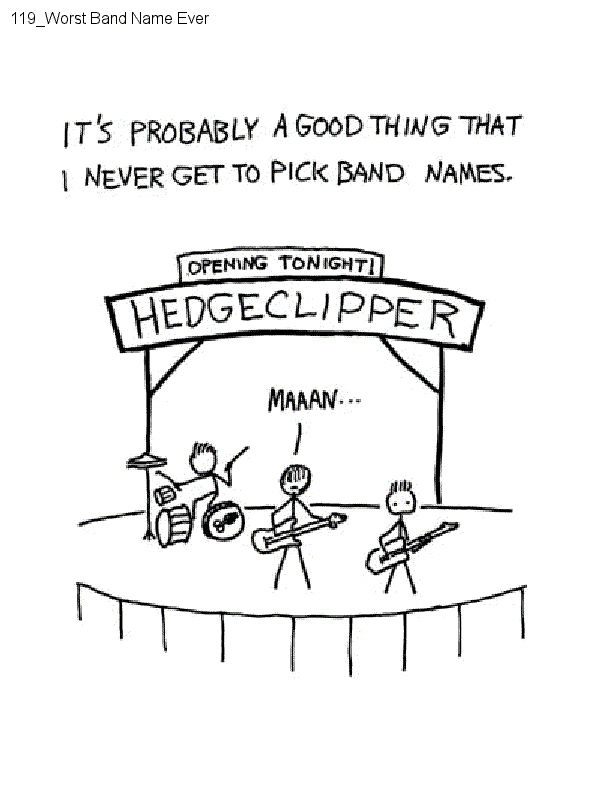 119_Worst Band Name Ever
IT'S PROBABLY A GOOD THING THAT
I NEVER GET TO PICK BAND NAMES.
OPENING TONIGHT!
HEDGECLIPPER
MAAAN...